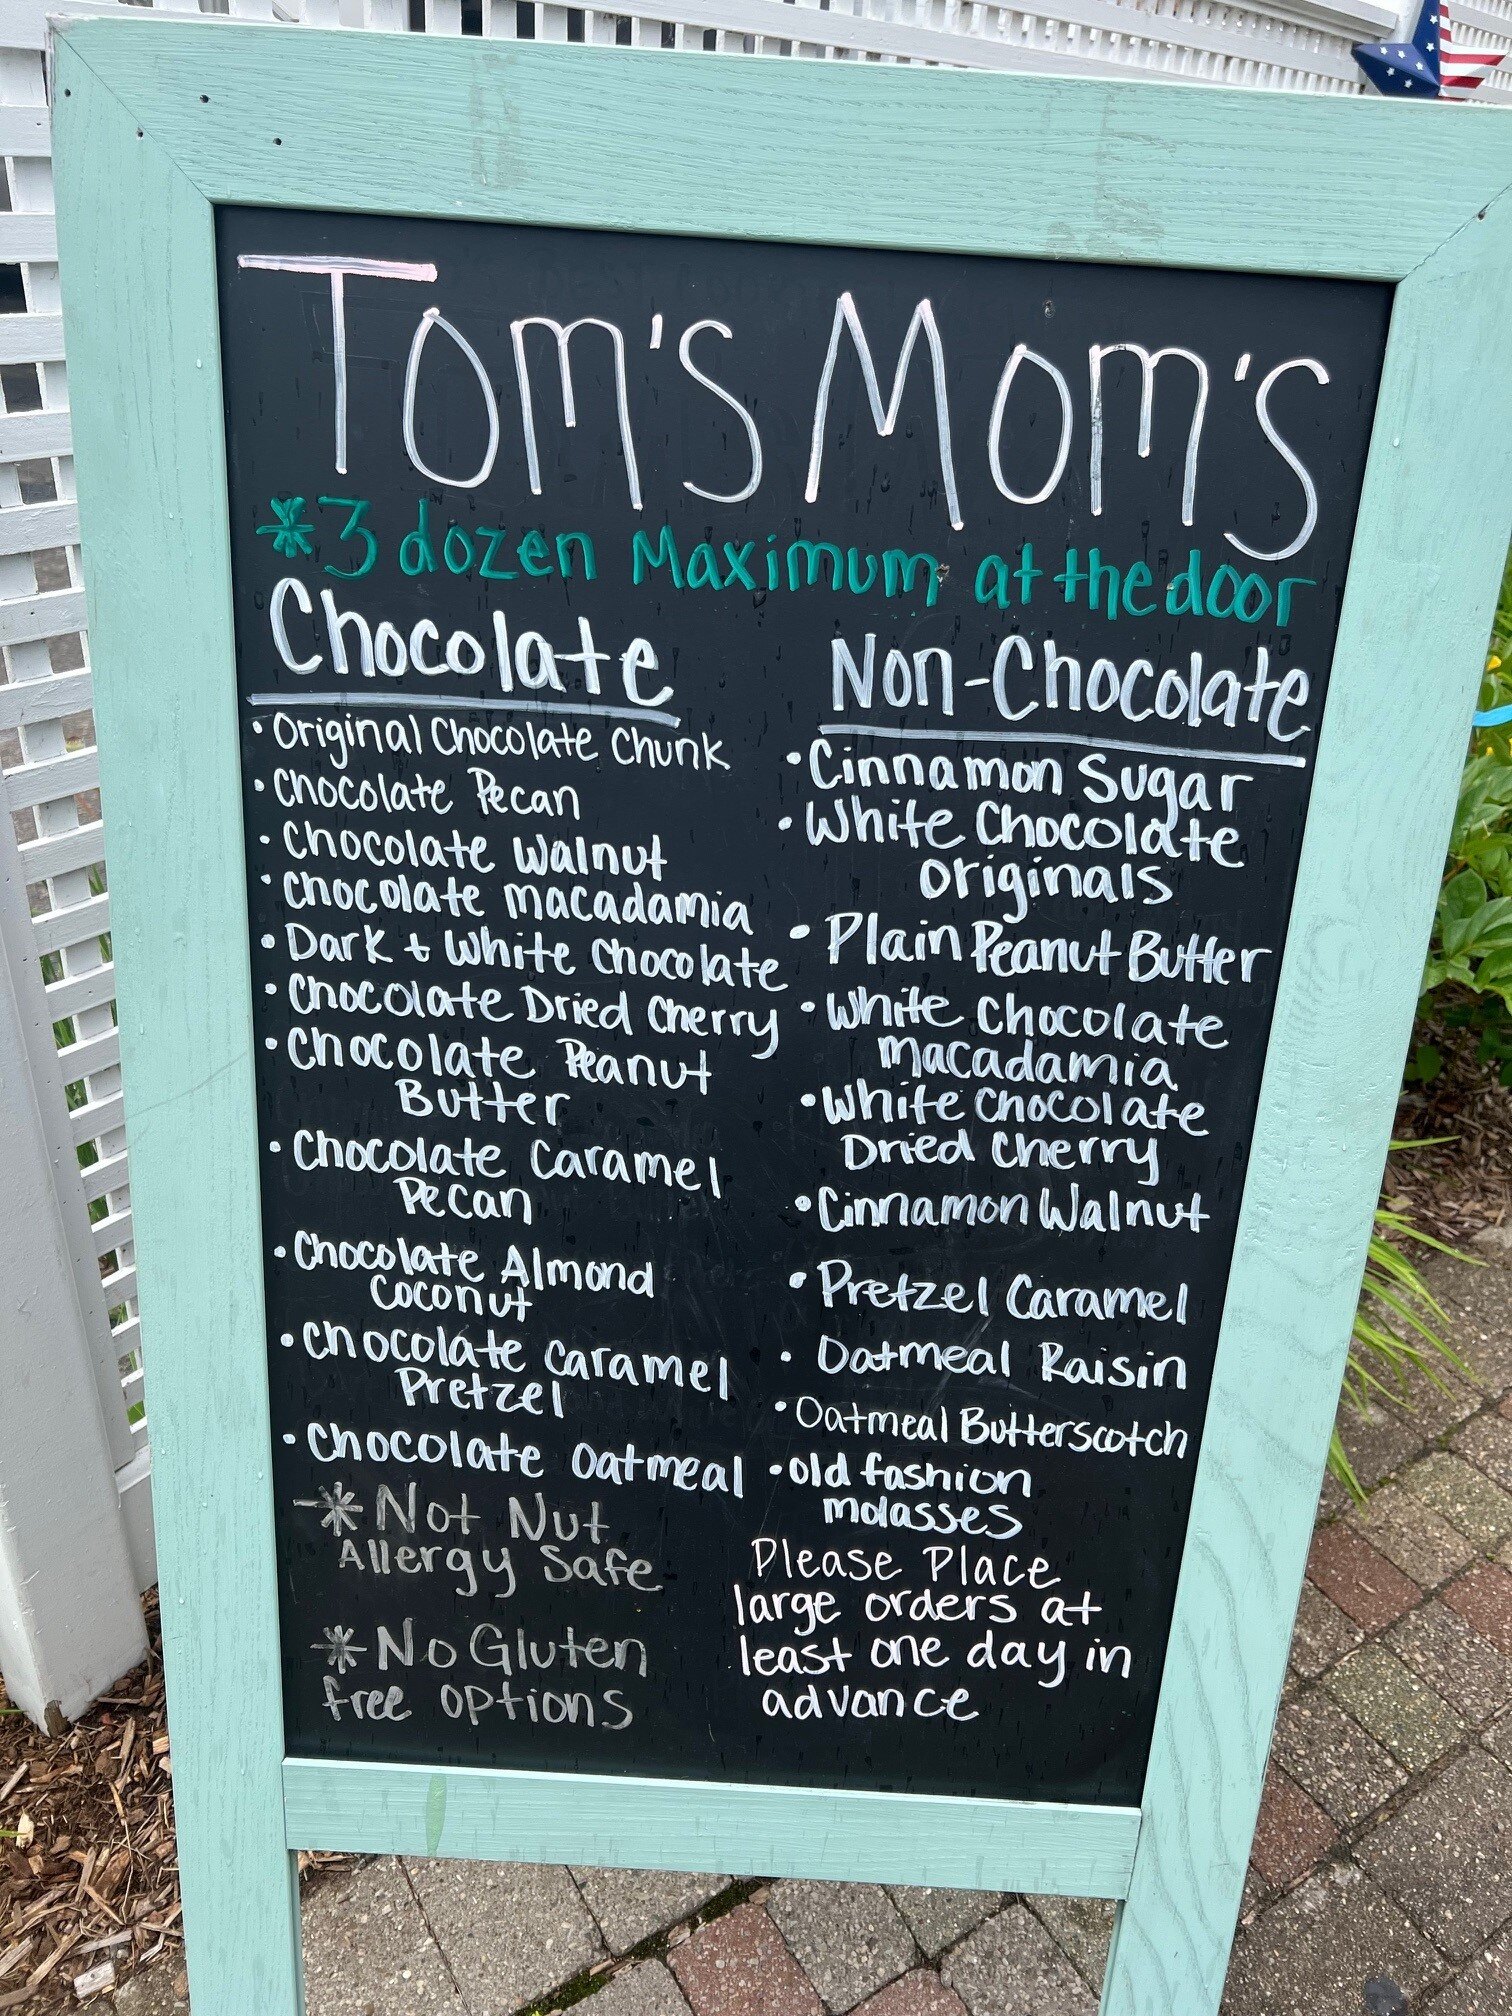 Tom's Mom's
*3 dozen Maximum at the door
Chocolate
• Original Chocolate Chunk
• Chocolate Pecan
• Chocolate Walnut
• Chocolate macadamia
• Dark + White Chocolate
• Chocolate Dried Cherry
• Chocolate Peanut
Butter
• Chocolate Caramel
Pecan
• Chocolate Almond
Coconut
• Chocolate Caramel
Pretzel
• Chocolate Oatmeal
* Not Nut
Allergy Safe
* No Gluten
free options
Non-Chocolate
• Cinnamon Sugar
• White Chocolate
Originals
• Plain Peanut Butter
• White Chocolate
macadamia
• White Chocolate
Dried Cherry
• Cinnamon Walnut
• Pretzel Caramel
• Oatmeal Raisin
• Oatmeal Butterscotch
• Old fashion
molasses
Please Place
large orders at
least one day in
advance